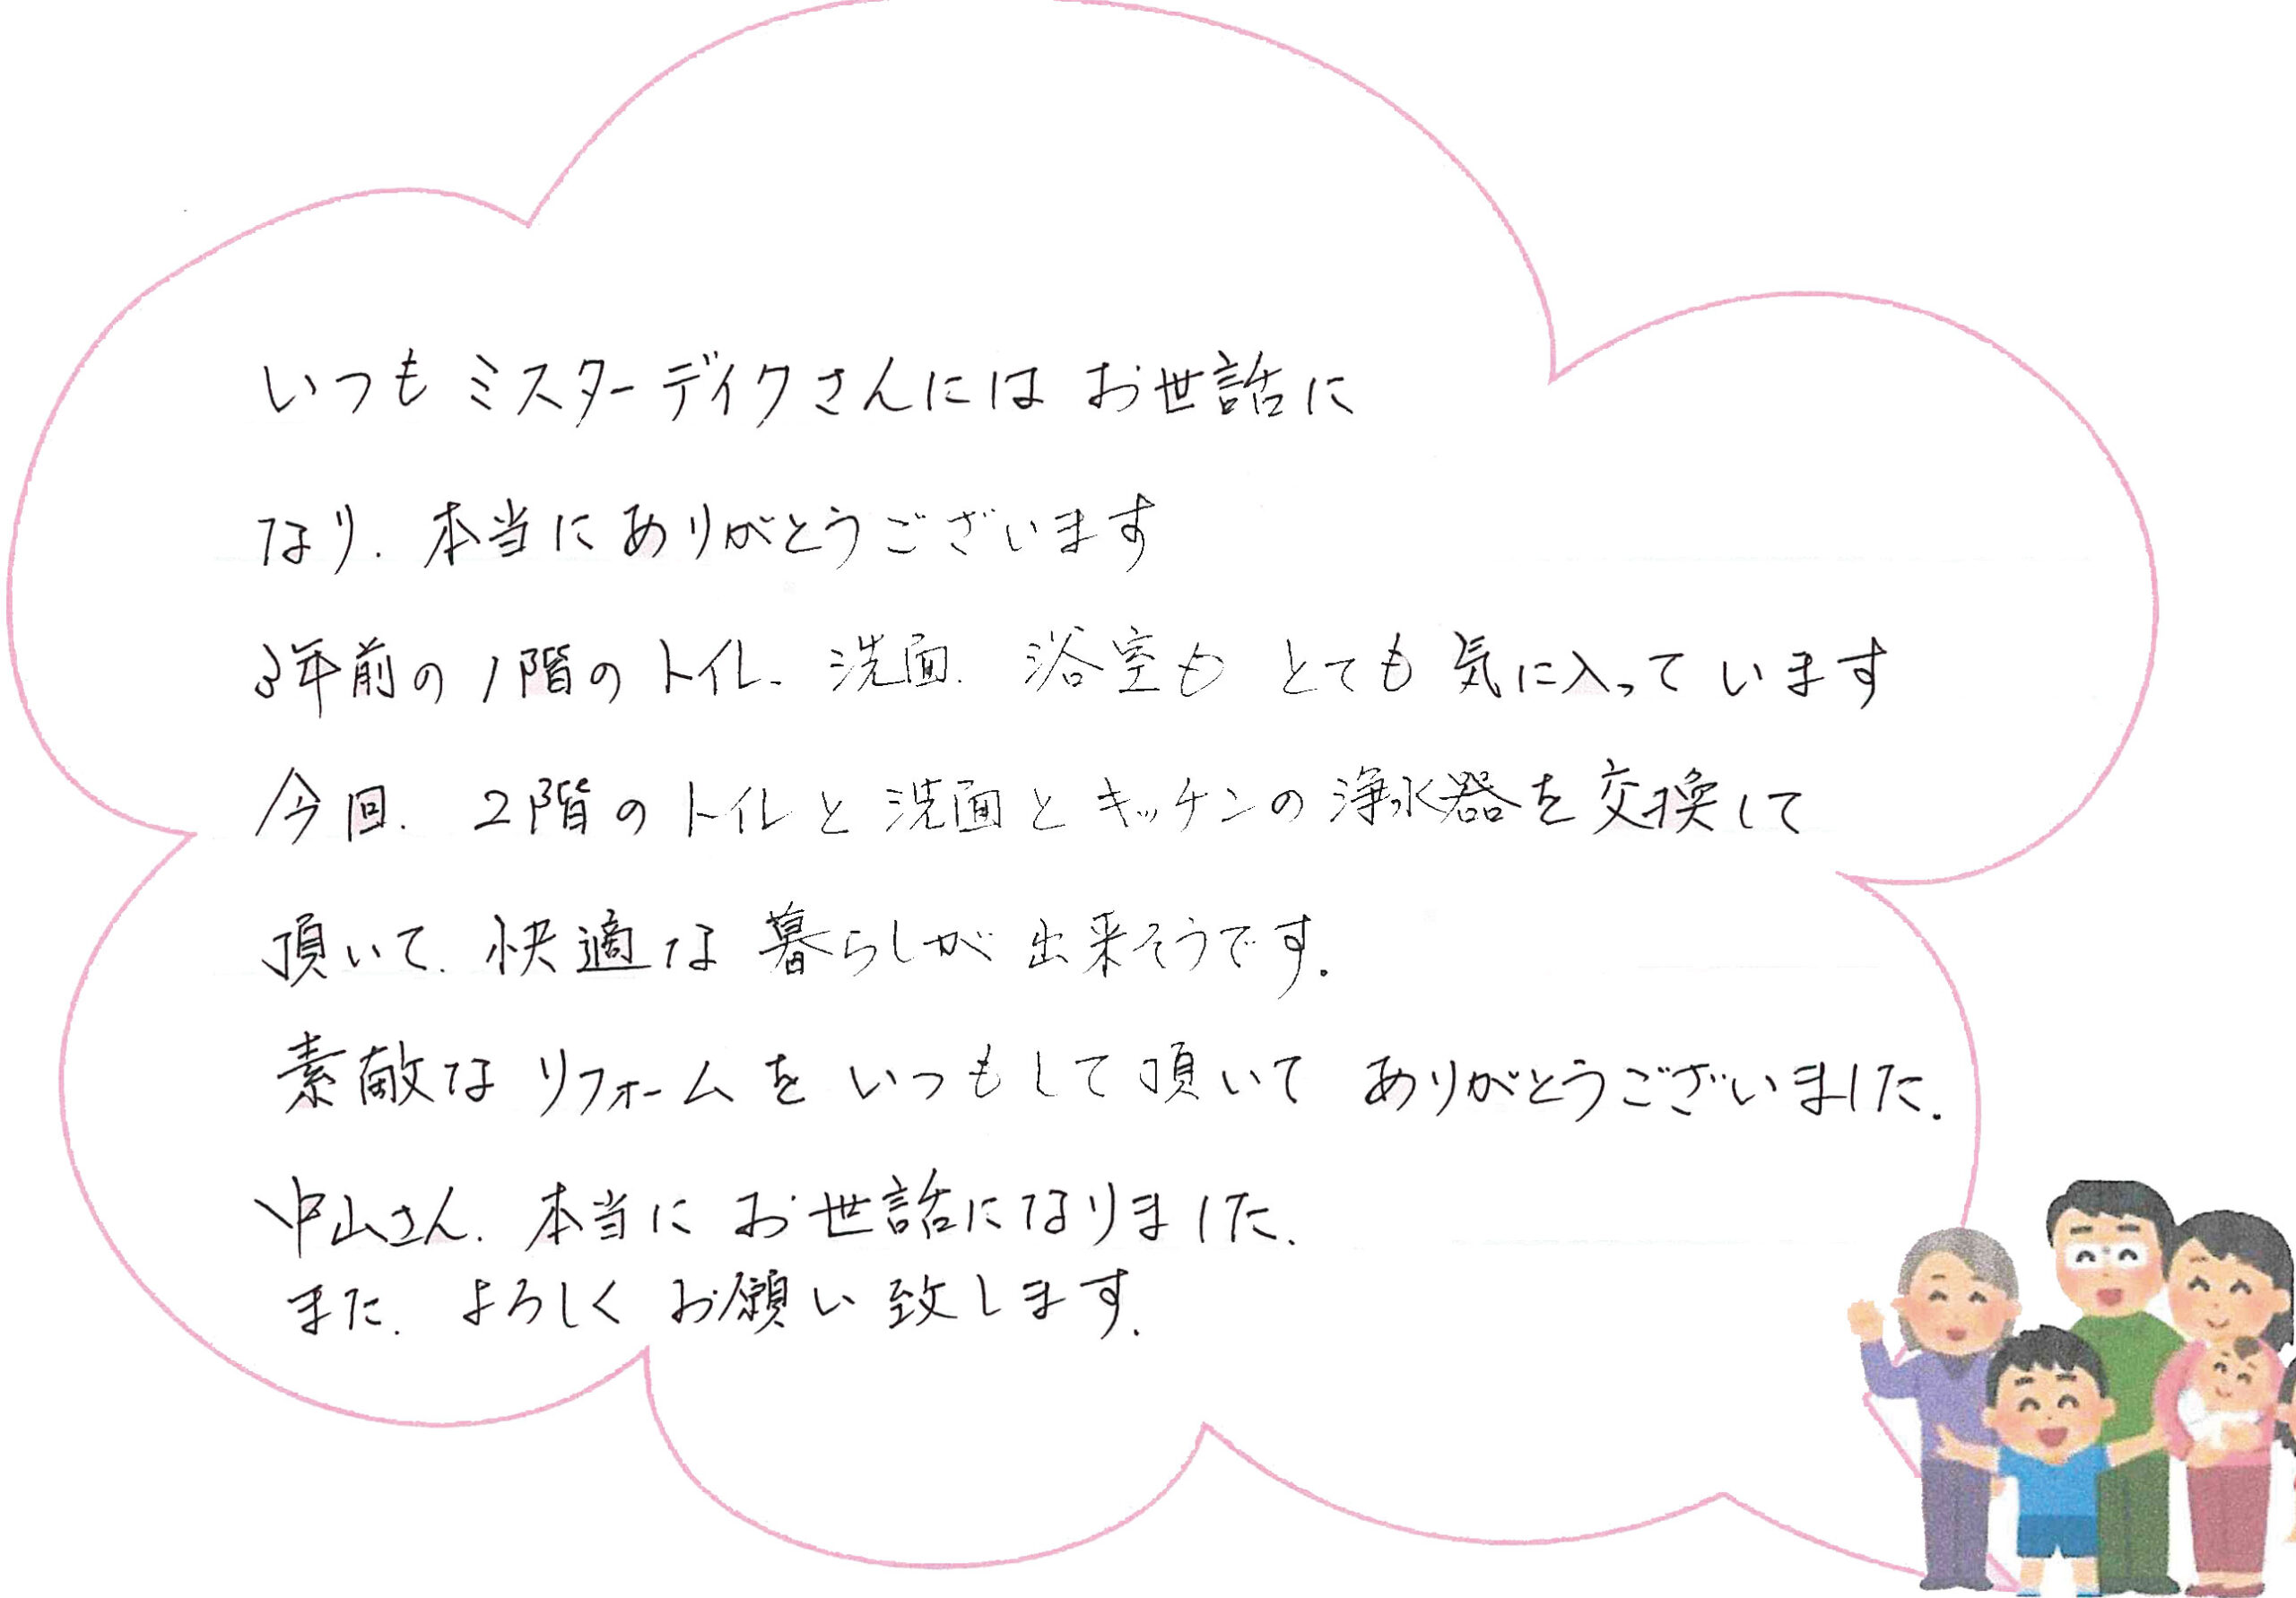 いつもミスターデイクさんには お世話に
なり、本当にありがとうございます
3年前の1階のトイレ、洗面、浴室も とても気に入っています
今回、2階のトイレと洗面とキッチンの浄水器を交換して
頂いて、快適な暮らしが出来そうです。
素敵なリフォームをいつもして頂いて ありがとうございました。
中山さん、本当にお世話になりました。
また、よろしくお願い致します。